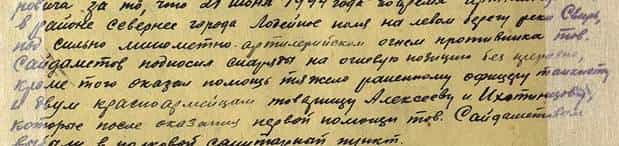 за то, что 21 июня 1944 года во время
в районе севернее города Лодейное поля на левом берегу реки Свирь,
под сильно минометно-артилерийском огнем противника тов.
Сайдаметов подносил снаряды на огневую позицию без
кроме того оказал помощь тяжело раненному офицеру танкисту
и двум красноармейцам товарищу Алексееву и
которые после оказания первой помощи тов. Сайдаметовым
в полковой санитарный пункт.